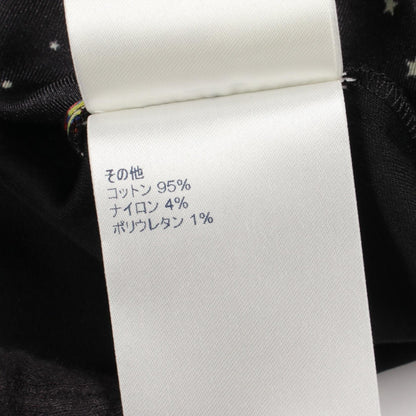 その他
コットン 95%
ナイロン 4%
ポリウレタン 1%